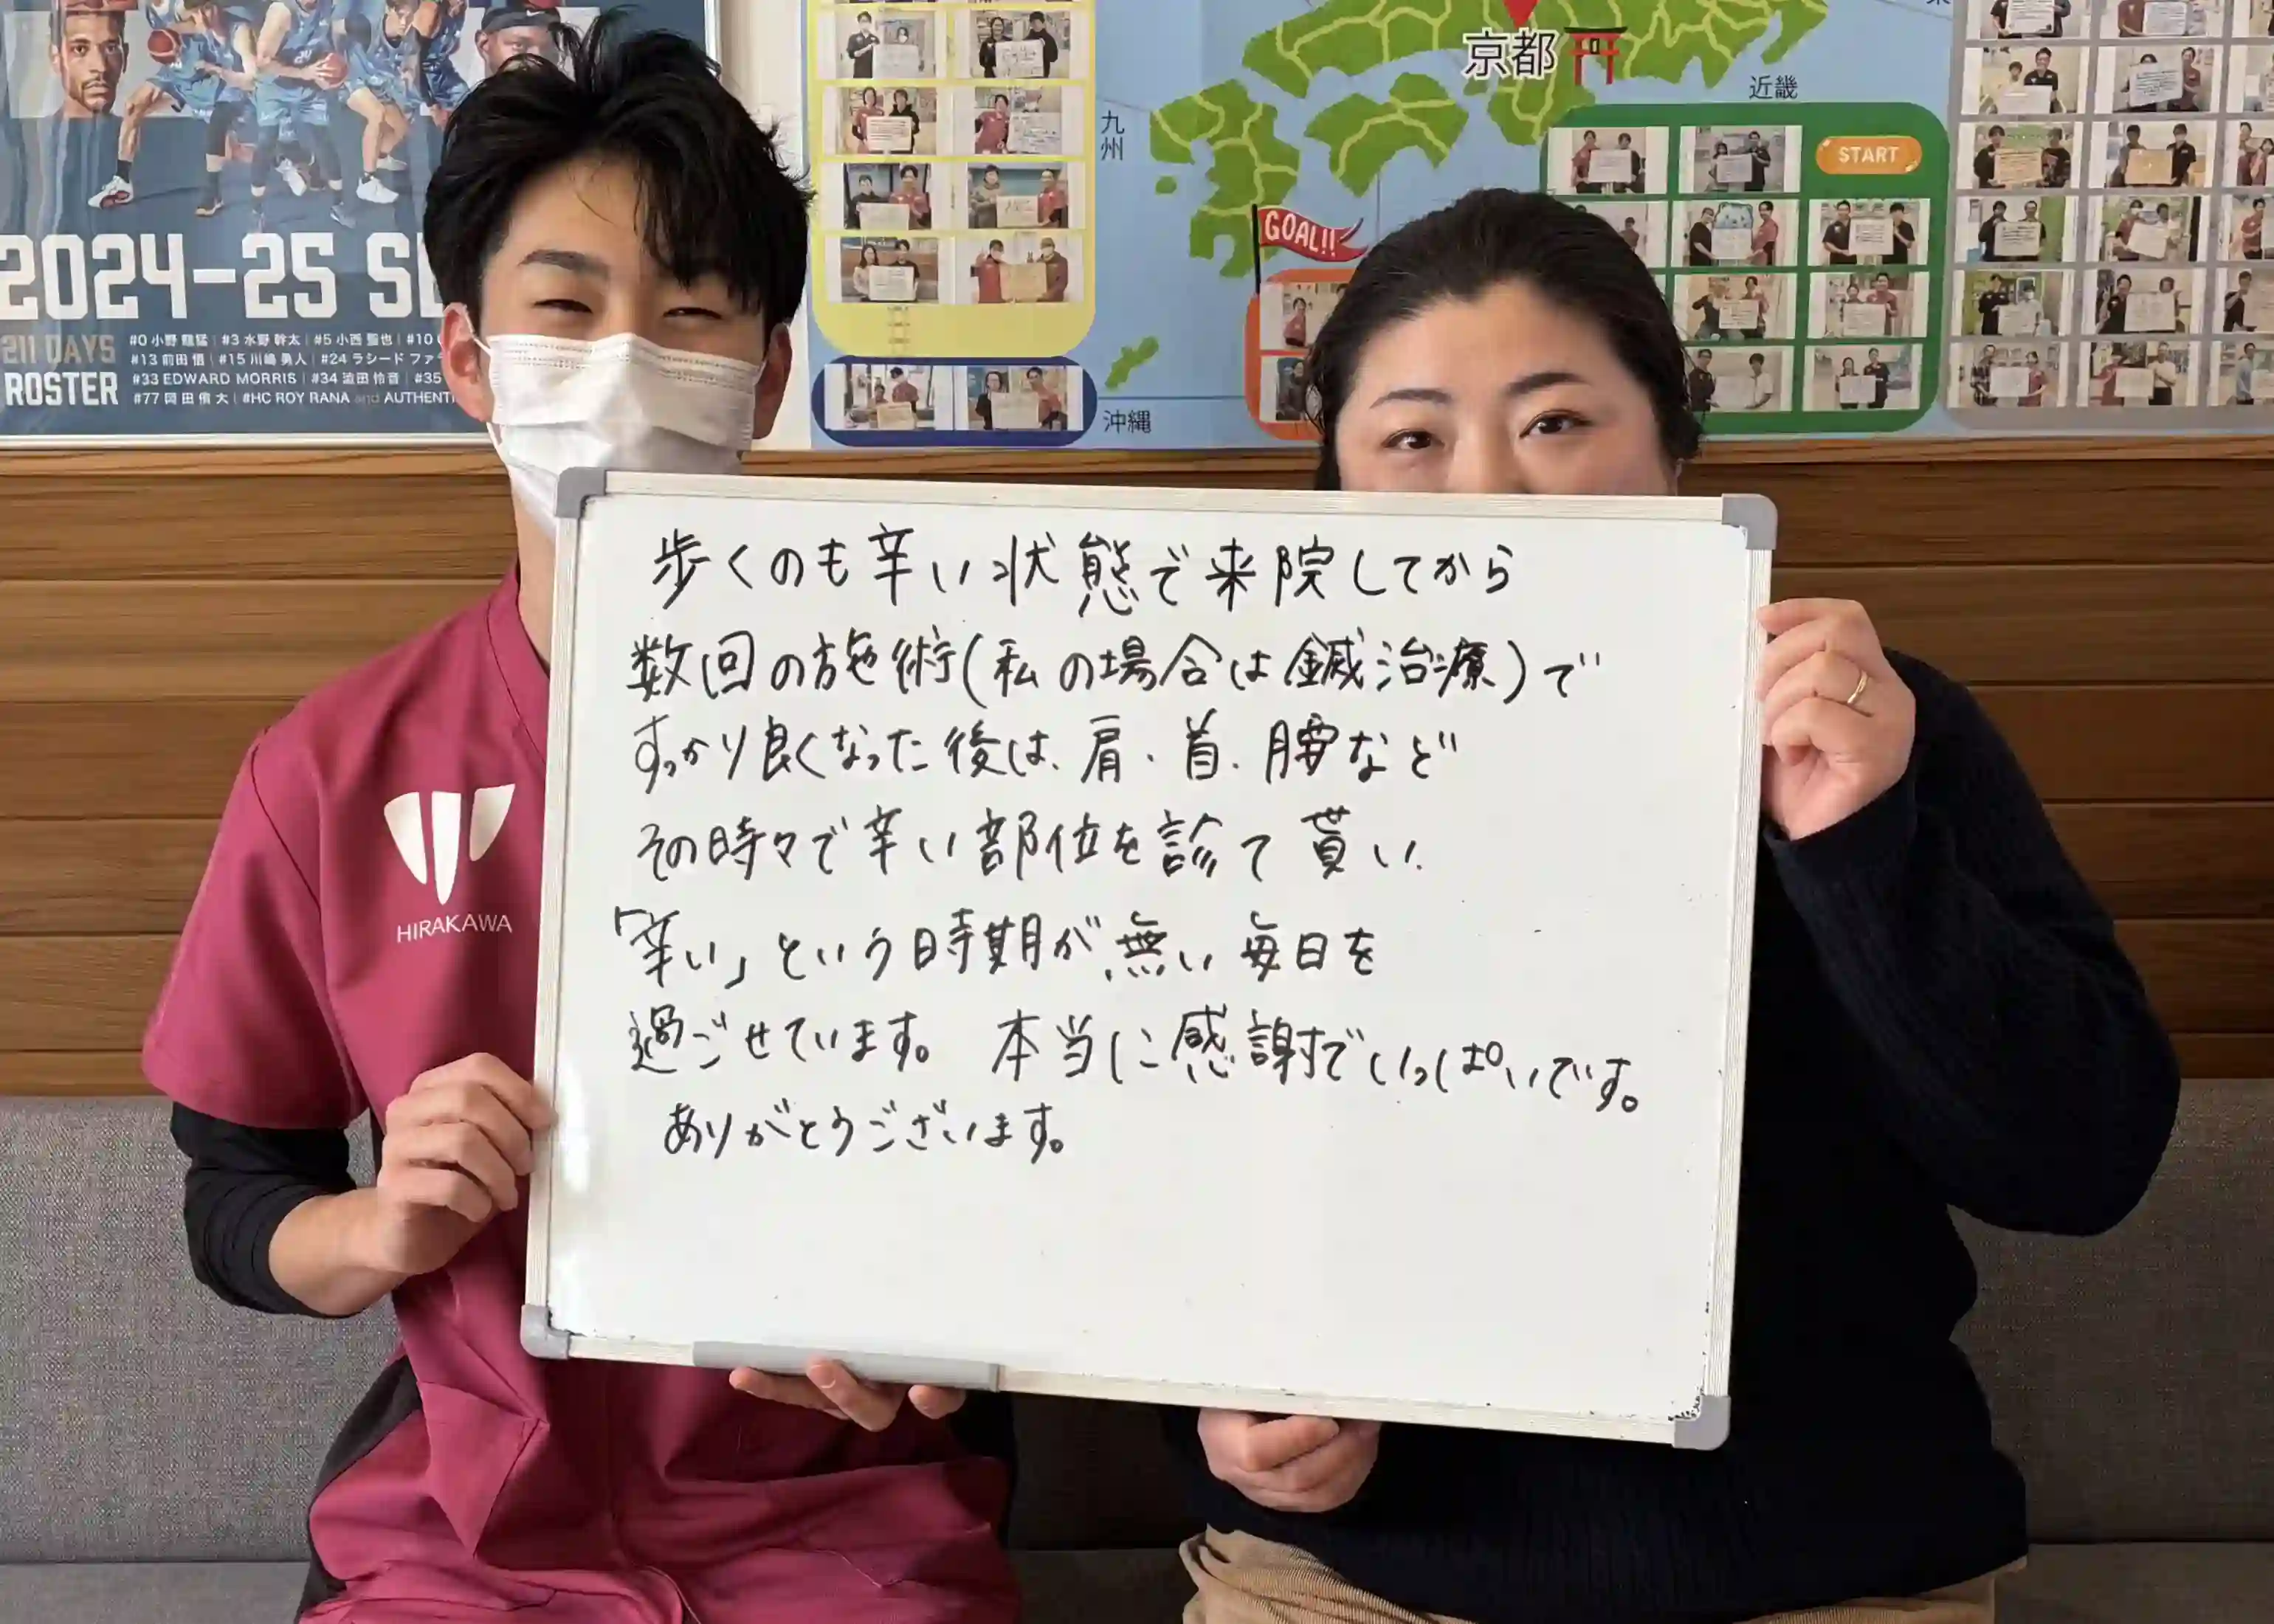 2024-25 SE
211 DAYS
ROSTER
#0 小野 龍猛 | #3 水野 幹太 | #5 小西 聖也 | #10
#13 前田 悟 | #15 川嶋 勇人 | #24 ラシード ファラ
#33 EDWARD MORRIS | #34 渡田 怜音 | #35
#77 岡田 侑大 | #HC ROY RANA and AUTHENTI
九州
沖縄
京都
近畿
START
GOAL!!
HIRAKAWA
歩くのも辛い状態で来院してから
数回の施術(私の場合は鍼治療)で
すっかり良くなった後は、肩・首・腰など
その時々で辛い部位を診て貰い、
「辛い」という時期が無い毎日を
過ごせています。本当に感謝でいっぱいです。
ありがとうございます。